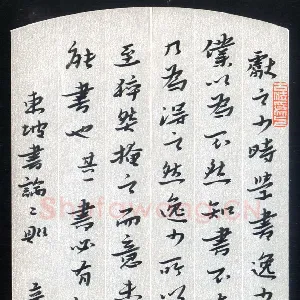 獻之少時學書逸少
僕以為不然知書不
乃為得之然逸少所以
至猝然掩之而意未
能書也其書必有
東坡書論二則
Shufawang.CN